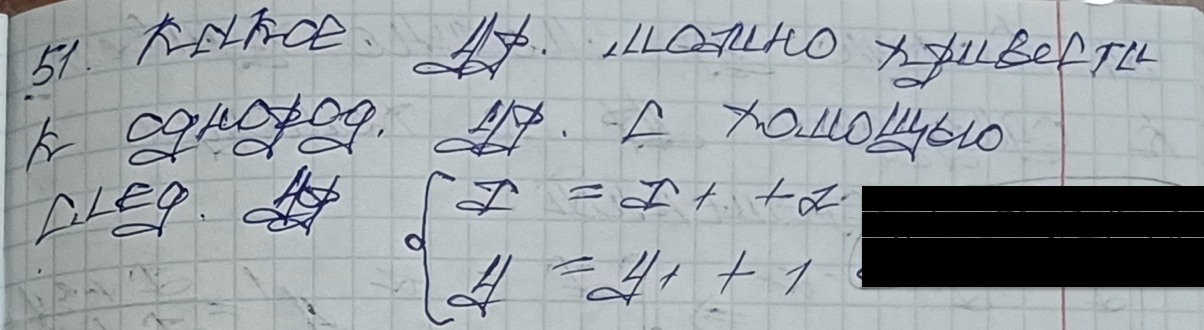 51. Какое. ДУ. можно привести
к однород. ДУ. с помощью
след. ДУ { x = x₁ + 2
y = y₁ + 1